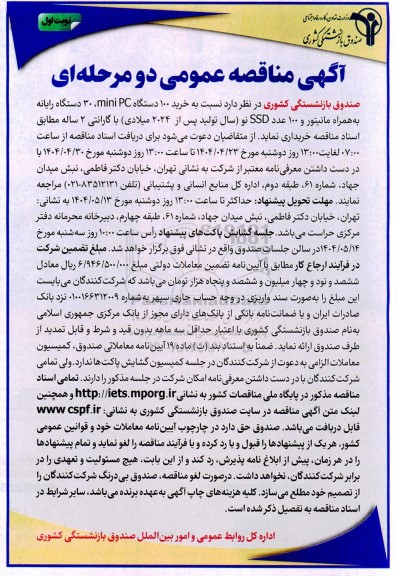 نوبت اول
وزارت تعاون، کار و رفاه اجتماعی
صندوق بازنشستگی کشوری
آگهی مناقصه عمومی دو مرحله‌ای
صندوق بازنشستگی کشوری در نظر دارد نسبت به خرید ۱۰۰ دستگاه mini PC، ۳۰ دستگاه رایانه
به‌همراه مانیتور و ۱۰۰ عدد SSD نو (سال تولید پس از ۲۰۲۴ میلادی) با گارانتی ۲ ساله مطابق
اسناد مناقصه خریداری نماید. از متقاضیان دعوت می‌شود برای دریافت اسناد مناقصه از ساعت
۰۷:۰۰ لغایت ۱۳:۰۰ روز دوشنبه مورخ ۱۴۰۴/۰۴/۲۳ تا ساعت ۱۳:۰۰ روز دوشنبه مورخ ۱۴۰۴/۰۴/۳۰ با
در دست داشتن معرفی‌نامه معتبر از شرکت به نشانی تهران، خیابان دکتر فاطمی، نبش میدان
جهاد، شماره ۶۱، طبقه دوم، اداره کل منابع انسانی و پشتیبانی (تلفن ۸۳۵۱۲۱۳۱-۰۲۱) مراجعه
نمایند. مهلت تحویل پیشنهاد: حداکثر تا ساعت ۱۳:۰۰ روز دوشنبه مورخ ۱۴۰۴/۰۵/۱۳ به نشانی:
تهران، خیابان دکتر فاطمی، نبش میدان جهاد، شماره ۶۱، طبقه چهارم، دبیرخانه محرمانه دفتر
مرکزی حراست می‌باشد. جلسه گشایش پاکت‌های پیشنهاد رأس ساعت ۱۰:۰۰ روز سه‌شنبه مورخ
۱۴۰۴/۰۵/۱۴ در سالن جلسات صندوق واقع در نشانی فوق برگزار خواهد شد. مبلغ تضمین شرکت
در فرآیند ارجاع کار مطابق با آیین‌نامه تضمین معاملات دولتی مبلغ ۶/۹۴۶/۵۰۰/۰۰۰ ریال معادل
ششصد و نود و چهار میلیون و ششصد و پنجاه هزار تومان می‌باشد که شرکت‌کنندگان می‌بایست
این مبلغ را به‌صورت سند واریزی در وجه حساب جاری سپهر به‌شماره ۰۱۰۰۱۶۶۳۱۲۰۰۹ نزد بانک
صادرات ایران و یا ضمانت‌نامه بانکی از بانک‌های دارای مجوز از بانک مرکزی جمهوری اسلامی
به‌نام صندوق بازنشستگی کشوری با اعتبار حداقل سه ماهه بدون قید و شرط و قابل تمدید از
طرف صندوق ارائه نماید. ضمناً به استناد بند (ث) ماده ۱۹ آیین‌نامه معاملاتی صندوق، کمیسیون
معاملات الزامی به دعوت از شرکت‌کنندگان در جلسه کمیسیون گشایش پاکت‌ها ندارد. ولی تمامی
شرکت‌کنندگان با در دست داشتن معرفی‌نامه امکان شرکت در جلسه مذکور را دارند. تمامی اسناد
مناقصه مذکور در پایگاه ملی مناقصات کشور به نشانی http://iets.mporg.ir و همچنین
لینک متن آگهی مناقصه در سایت صندوق بازنشستگی کشوری به نشانی: www.cspf.ir
قابل دریافت می‌باشد. صندوق حق دارد در چارچوب آیین‌نامه معاملات خود و قوانین عمومی
کشور، هر یک از پیشنهادها را قبول و یا رد کرده و یا فرآیند مناقصه را لغو نماید و تمام پیشنهادها
را در هر زمان، پیش از ابلاغ نامه پذیرش، رد کند و از این بابت، هیچ مسئولیت و تعهدی را در
برابر شرکت‌کنندگان، نخواهد داشت. درصورت لغو مناقصه، صندوق بی‌درنگ شرکت‌کنندگان را
از تصمیم خود مطلع می‌سازد. کلیه هزینه‌های چاپ آگهی به‌عهده برنده می‌باشد، سایر شرایط در
اسناد مناقصه به تفصیل ذکر شده است.
اداره کل روابط عمومی و امور بین‌الملل صندوق بازنشستگی کشوری